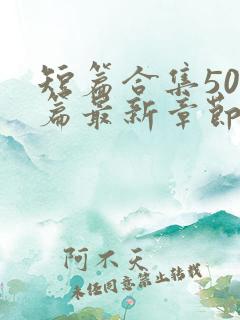 短篇合集50
篇最新章节
阿不天
未经同意禁止转载